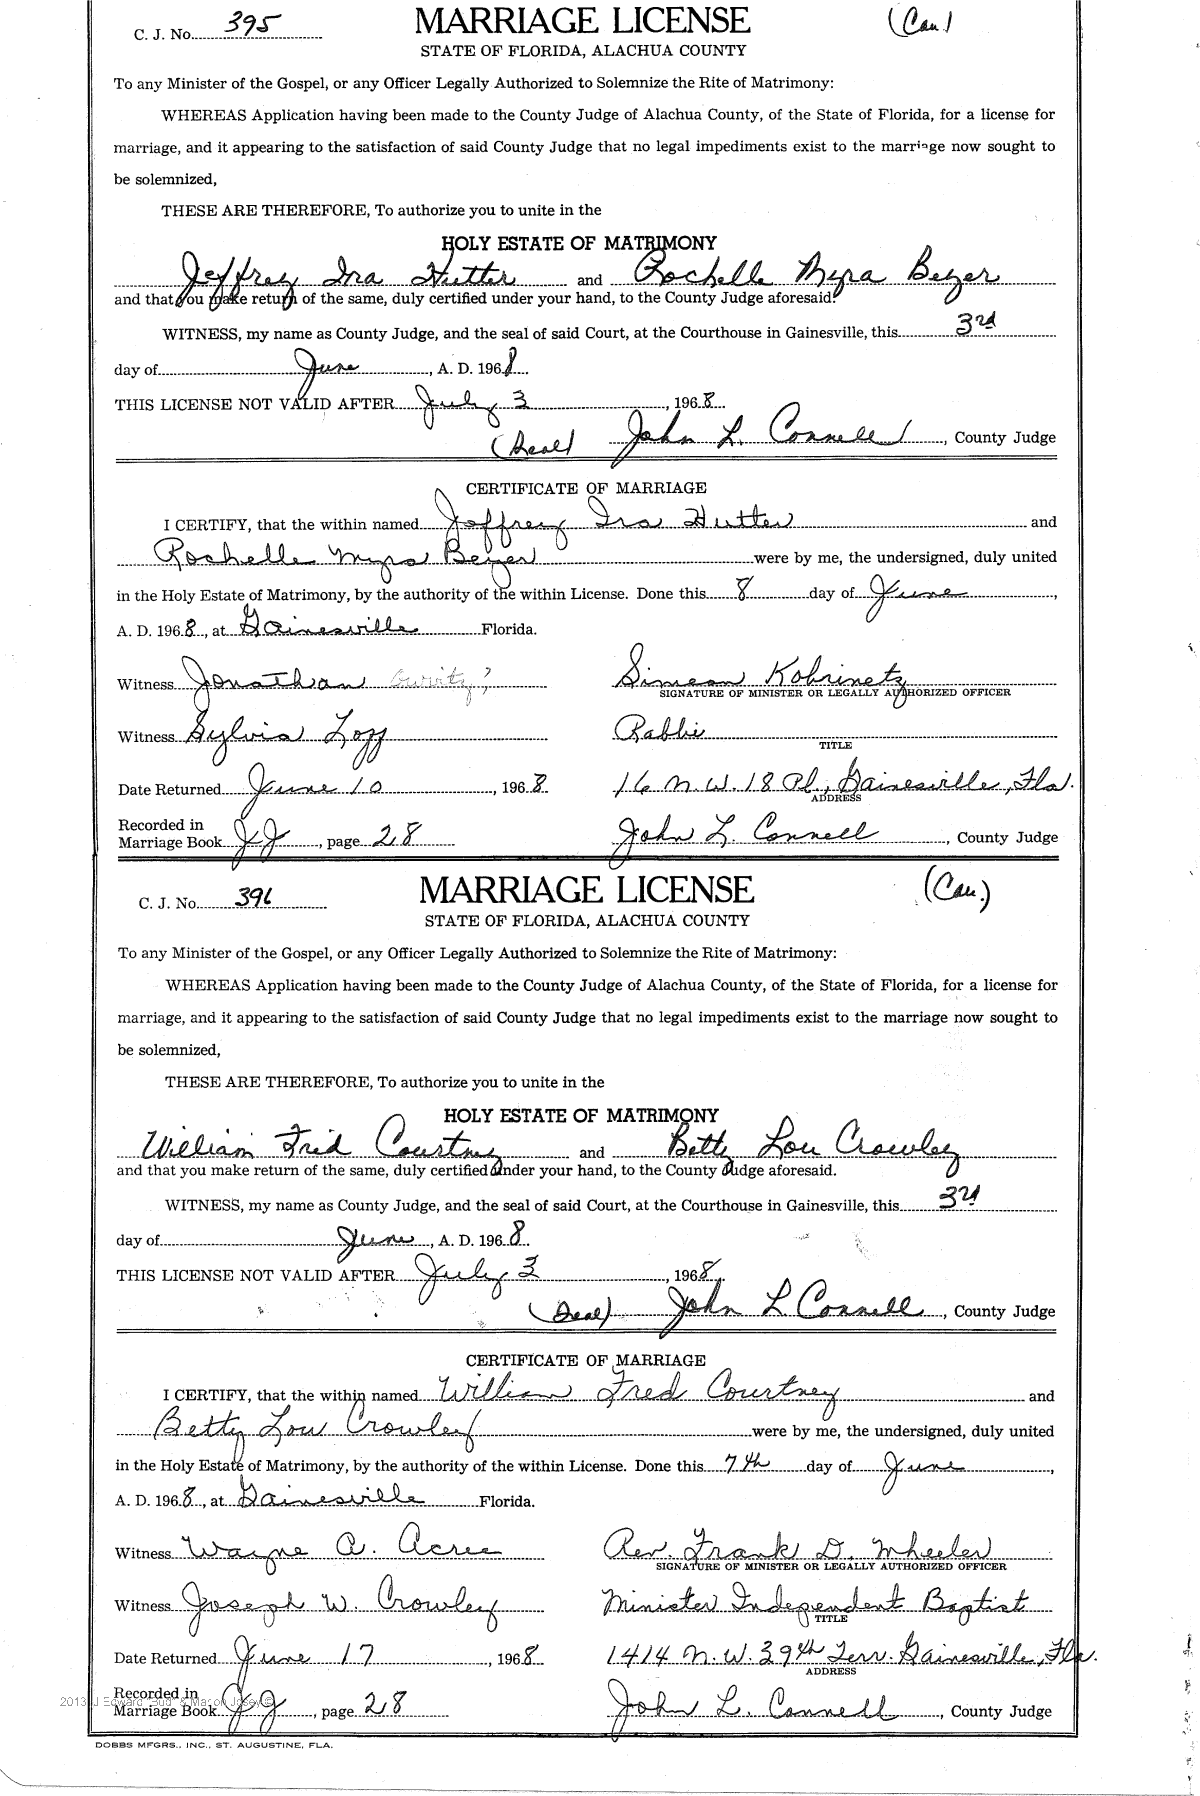 C. J. No. 395 MARRIAGE LICENSE (Cau.)
STATE OF FLORIDA, ALACHUA COUNTY
To any Minister of the Gospel, or any Officer Legally Authorized to Solemnize the Rite of Matrimony:
WHEREAS Application having been made to the County Judge of Alachua County, of the State of Florida, for a license for
marriage, and it appearing to the satisfaction of said County Judge that no legal impediments exist to the marriage now sought to
be solemnized,
THESE ARE THEREFORE, To authorize you to unite in the
HOLY ESTATE OF MATRIMONY
Jeffrey Ira Hutter and Rochelle Myra Beyer
and that you make return of the same, duly certified under your hand, to the County Judge aforesaid.
WITNESS, my name as County Judge, and the seal of said Court, at the Courthouse in Gainesville, this 3rd
day of June, A. D. 1968
THIS LICENSE NOT VALID AFTER July 3, 1968
(Seal) John L. Connell, County Judge
CERTIFICATE OF MARRIAGE
I CERTIFY, that the within named Jeffrey Ira Hutter and
Rochelle Myra Beyer were by me, the undersigned, duly united
in the Holy Estate of Matrimony, by the authority of the within License. Done this 8 day of June,
A. D. 1968, at Gainesville Florida.
Witness Jonathan Simeon Kobrinetz
SIGNATURE OF MINISTER OR LEGALLY AUTHORIZED OFFICER
Witness Sylvia Rabbi
TITLE
Date Returned June 10, 1968 16 N.W. 18 Pl., Gainesville, Fla.
ADDRESS
Recorded in
Marriage Book JJ, page 28 John L. Connell, County Judge
C. J. No. 396 MARRIAGE LICENSE (Cau.)
STATE OF FLORIDA, ALACHUA COUNTY
To any Minister of the Gospel, or any Officer Legally Authorized to Solemnize the Rite of Matrimony:
WHEREAS Application having been made to the County Judge of Alachua County, of the State of Florida, for a license for
marriage, and it appearing to the satisfaction of said County Judge that no legal impediments exist to the marriage now sought to
be solemnized,
THESE ARE THEREFORE, To authorize you to unite in the
HOLY ESTATE OF MATRIMONY
William Fred Courtney and Betty Lou Crowley
and that you make return of the same, duly certified under your hand, to the County Judge aforesaid.
WITNESS, my name as County Judge, and the seal of said Court, at the Courthouse in Gainesville, this 3rd
day of June, A. D. 1968
THIS LICENSE NOT VALID AFTER July 3, 1968
(Seal) John L Connell, County Judge
CERTIFICATE OF MARRIAGE
I CERTIFY, that the within named William Fred Courtney and
Betty Lou Crowley were by me, the undersigned, duly united
in the Holy Estate of Matrimony, by the authority of the within License. Done this 7th day of June,
A. D. 1968, at Gainesville Florida.
Witness Wayne A. Acree Rev. Frank D. Wheeler
SIGNATURE OF MINISTER OR LEGALLY AUTHORIZED OFFICER
Witness Joseph W. Crowley Minister Independent Baptist
TITLE
Date Returned June 17, 1968 1414 N.W. 39th Terr. Gainesville, Fla.
ADDRESS
Recorded in
Marriage Book JJ, page 28 John L. Connell, County Judge
2013 J Edward "Bud" & Marion Josey ©
DOBBS MFGRS., INC., ST. AUGUSTINE, FLA.